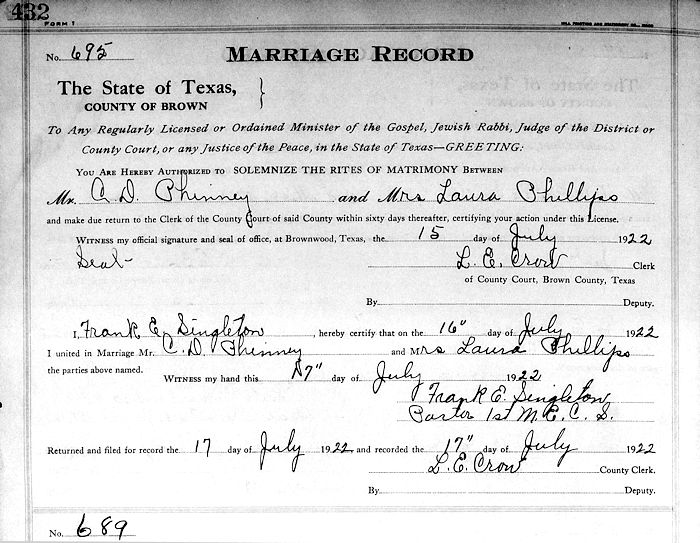 432
FORM 1
No. 695
MARRIAGE RECORD
The State of Texas,
COUNTY OF BROWN
To Any Regularly Licensed or Ordained Minister of the Gospel, Jewish Rabbi, Judge of the District or
County Court, or any Justice of the Peace, in the State of Texas—GREETING:
YOU ARE HEREBY AUTHORIZED TO SOLEMNIZE THE RITES OF MATRIMONY BETWEEN
Mr. C. D. Phinney and Mrs Laura Phillips
and make due return to the Clerk of the County Court of said County within sixty days thereafter, certifying your action under this License.
WITNESS my official signature and seal of office, at Brownwood, Texas, the 15 day of July 1922
Seal- L. E. Crow Clerk
of County Court, Brown County, Texas
By Deputy.
I, Frank E. Singleton, hereby certify that on the 16" day of July 1922
I united in Marriage Mr. C. D. Phinney and Mrs Laura Phillips
the parties above named. WITNESS my hand this 17" day of July 1922
Frank E. Singleton
Pastor 1st M. E. C. S.
Returned and filed for record the 17 day of July 1922 and recorded the 17" day of July 1922
L. E. Crow County Clerk.
By Deputy.
No. 689